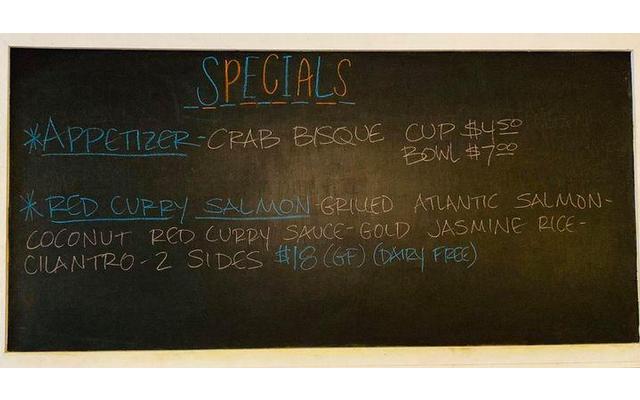 SPECIALS
*APPETIZER-CRAB BISQUE CUP $4.50
BOWL $7.00
*RED CURRY SALMON-GRILLED ATLANTIC SALMON-
COCONUT RED CURRY SAUCE-GOLD JASMINE RICE-
CILANTRO-2 SIDES $18 (GF) (DAIRY FREE)